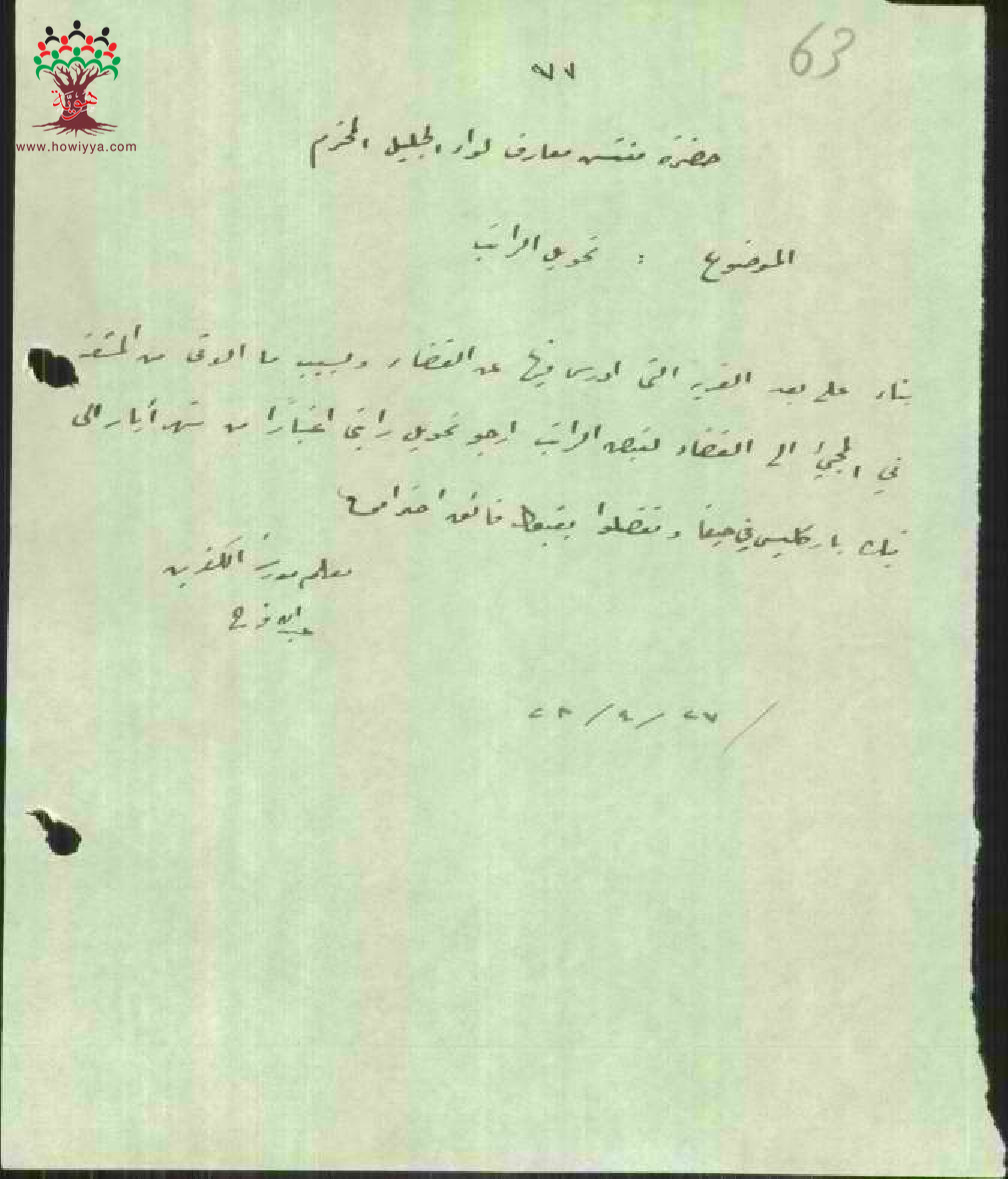 63
هوية
www.howiyya.com
٧٦
حضرة مفتش معارف لواء الجليل المحترم
الموضوع : تحويل الراتب
بناء على بعد القرية التي ادرس فيها عن القضاء وبسبب ما الاقي من المشقة
في المجيء الى القضاء لقبض الراتب ارجو تحويل راتبي اعتبارًا من شهر أيار الى
بنك باركليس في حيفا وتفضلوا بقبول فائق احترامي
معلم مدرسة الكفرين
عبد الله فرح
٢٧/٤/